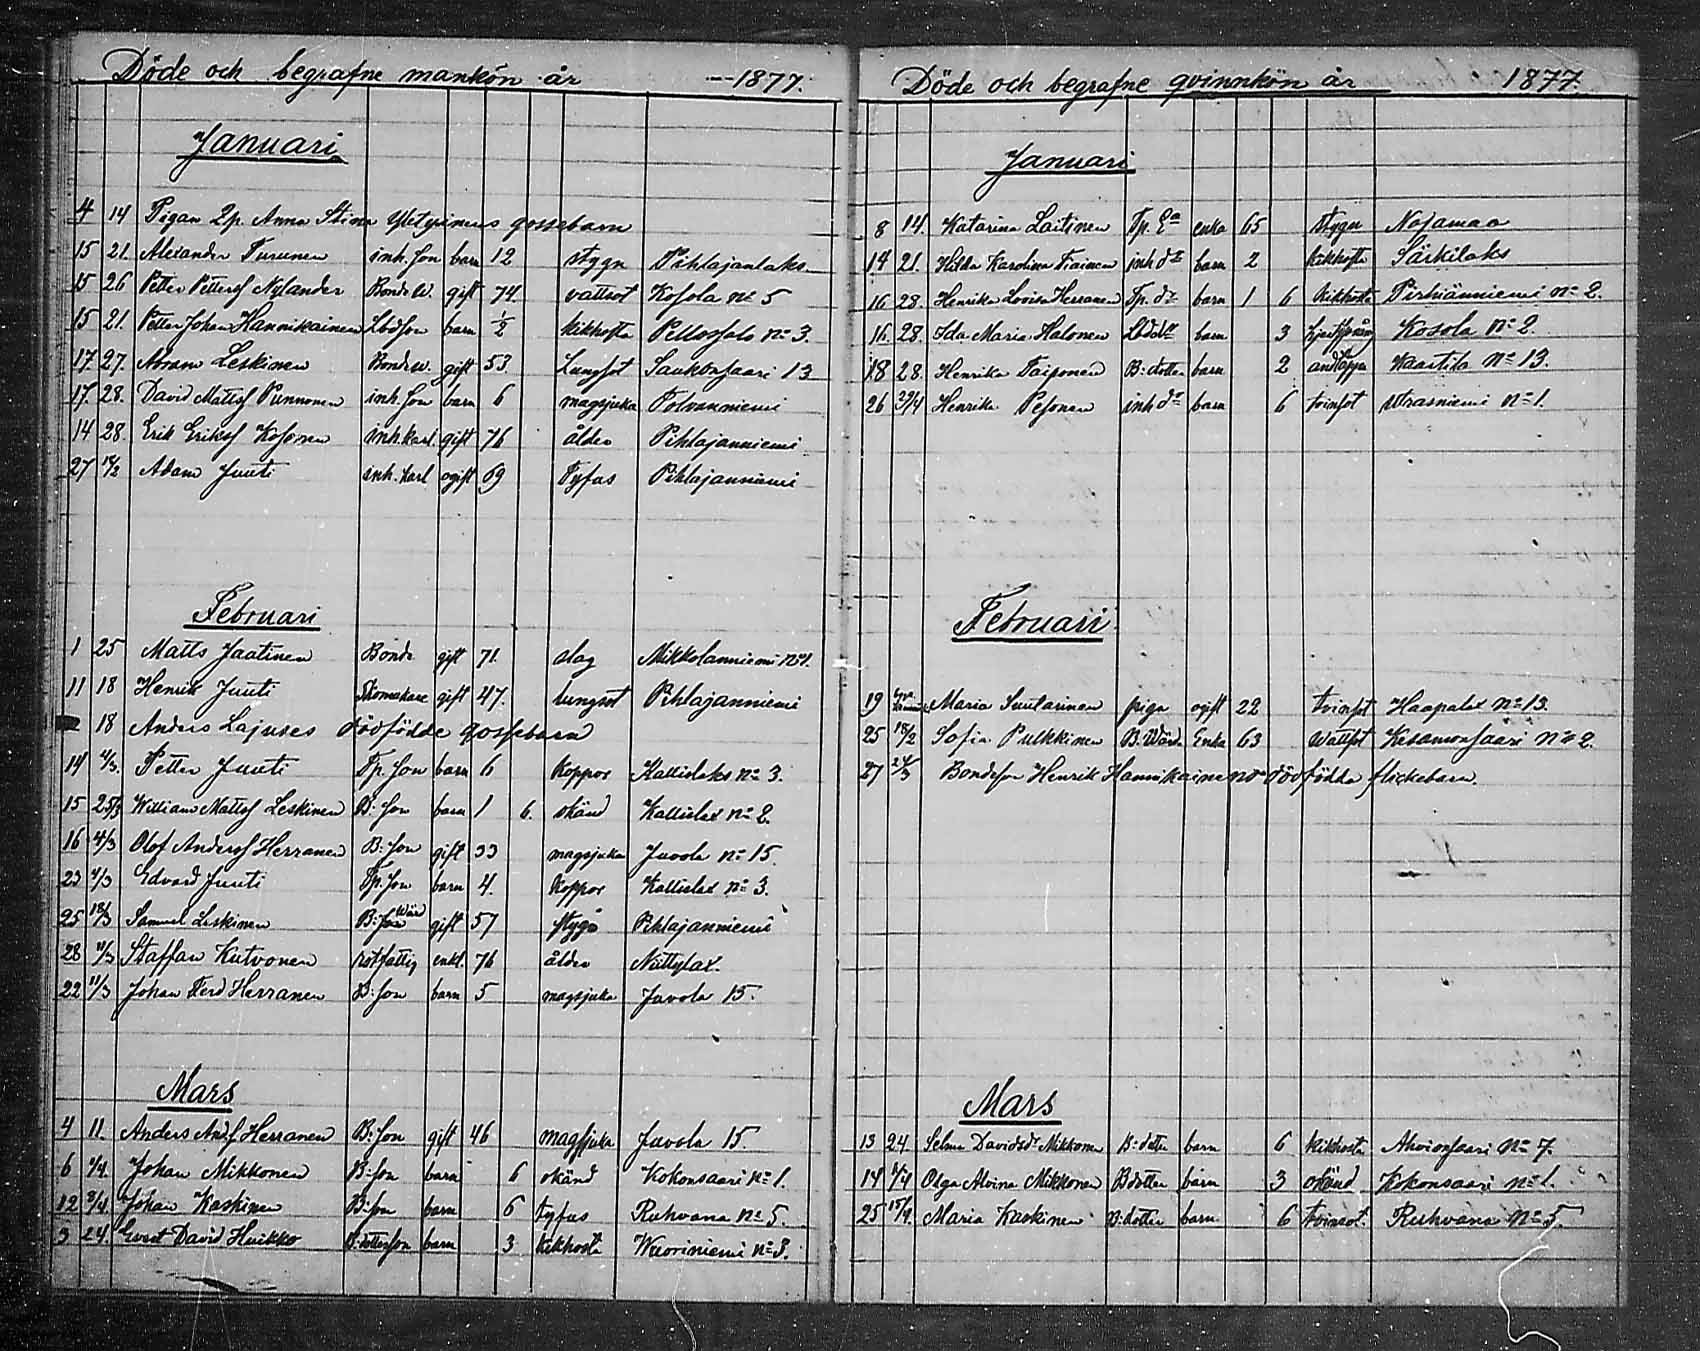 Döde och begrafne mankön år 1877.
Januari
4 14 Pigan Anna Stina gossebarn
15 21. Alexander Turunen inh. son barn 12 stygn Pihlajanlaks
15 26 Petter Petterss Nylander Bonde gift 74 vattsot Kosola No 5
15 21. Petter Johan Hannikainen Lbdson barn 1/2 kikhosta Pellossalo No 3.
17. 27. Abram Leskinen Bonde gift 53 Lungsot 13
17. 28. David Mattss Punnonen inh. son barn 6 magsjuka Tolvanniemi
14 28. Erik Erikss Kosonen inh. karl. gift 76 ålder Pihlajanniemi
27 Adam Juuti inh. karl ogift 69 Tyfus Pihlajanniemi
Februari
1 25 Matts Jaatinen Bonde gift 71. slag Mikkolanniemi No 1.
11 18 Henrik Juuti Skomakare gift 47. Lungsot Pihlajanniemi
18 Anders Lajuses dödfödde gossebarn
14 4/3. Petter Juuti Tp. son barn 6 koppor Kallislaks No 3.
15 25/3 William Mattss Leskinen B: son barn 1 6. okänd Kallislax No 2.
16 4/3 Olof Anderss Herranen B: son gift 33 magsjuka Juvola No 15.
23 4/3 Edvard Juuti Tp. son barn 4. koppor Kallislax No 3.
25 18/3 Samuel Leskinen B: son gift 57 Pihlajanniemi
28 11/3 Staffan Kutvonen rotfattig enkl. 76 ålder Niittylax.
22 11/3 Johan Ferd Herranen B: son barn 5 magsjuka Juvola 15.
Mars
4 11. Anders Andss Herranen B: son gift 46 magsjuka Juvola 15.
6 Johan Mikkonen B: son barn 6 okänd Kokonsaari No 1.
12 Johan Kaskinen B: son barn 6 tyfus Ruhvana No 5.
9 24. Evert David Huikko B: dotterson barn 3 kikhosta Wuoriniemi No 8.
Döde och begrafne qvinnkön år 1877.
Januari
8 14. Katarina Laitinen Tp. Ea enka 65 stygn Nojamaa
14 21. Hilda Karolina Tiainen inh dr barn 2 kikhosta Särkilaks
16 28. Henrika Lovisa Herranen Tp. dr barn 1 6 kikhosta Pirhiänniemi No 2.
16. 28. Ida Maria Halonen barn 3 Kosola No 2.
18 28. Henrika Taiponen B: dotter barn 2 andtäppa Kaartila No 13.
26 Henrika Pesonen inh dr barn 6 tvinsot Utrasniemi No 1.
Februari
19 Maria Suutarinen piga ogift 22 tvinsot Haapalax No 13.
25 18/2 Sofia Pulkkinen B. Wärd Enka 63 Wattsot Kesamonsaari No 2.
27 Bondeson Henrik Hannikainens dödfödda flickebarn.
Mars
13 24. Selma Davidsdr Mikkonen B: dotter barn 6 kikhosta Ahvionsaari No 7.
14 Olga Alvina Mikkonen B dotter barn 3 okänd Kokonsaari No 1.
25 15/4. Maria Kaskinen B: dotter barn 6 tvinsot. Ruhvana No 5.